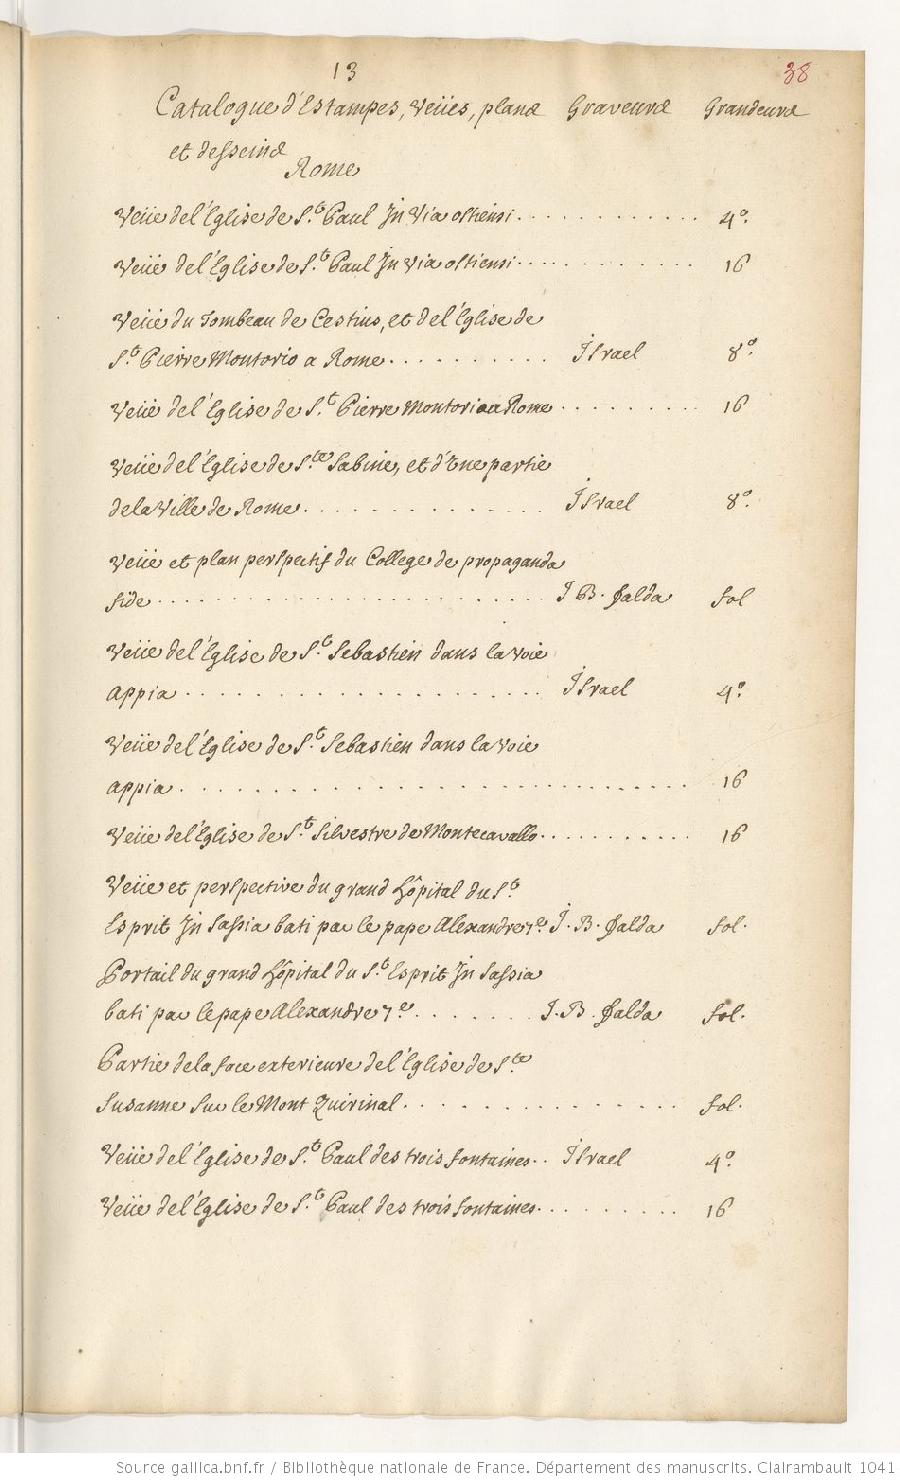 13
38
Catalogue d'Estampes, Veües, plans Graveurs Grandeurs
et desseins
Rome
Veüe de l'Eglise de S.t Paul In Via ostiensi 4.º
Veüe de l'Eglise de S.t Paul In Via ostiensi 16
Veüe du Tombeau de Cestius, et de l'Eglise de
S.t Pierre Montorio a Rome Israel 8.º
Veüe de l'Eglise de S.t Pierre Montorio a Rome 16
Veüe de l'Eglise de S.te Sabine, et d'Une partie
de la Ville de Rome Israel 8.º
Veüe et plan perspectif du College de propaganda
fide I B. Falda fol
Veüe de l'Eglise de S.t Sebastien dans la voie
appia Israel 4.º
Veüe de l'Eglise de S.t Sebastien dans la voie
appia 16
Veüe de l'Eglise de S.t Silvestre de Montecavallo 16
Veüe et perspective du grand hôpital du S.t
Esprit In Sassia bati par le pape Alexandre 7.e I. B. Falda fol.
Portail du grand hôpital du S.t Esprit In Sassia
bati par le pape Alexandre 7.e I. B. Falda fol.
Partie de la face exterieure de l'Eglise de S.te
Susanne sur le Mont Quirinal fol.
Veüe de l'Eglise de S.t Paul des trois fontaines Israel 4.º
Veüe de l'Eglise de S.t Paul des trois fontaines 16
Source gallica.bnf.fr / Bibliothèque nationale de France. Département des manuscrits. Clairambault 1041